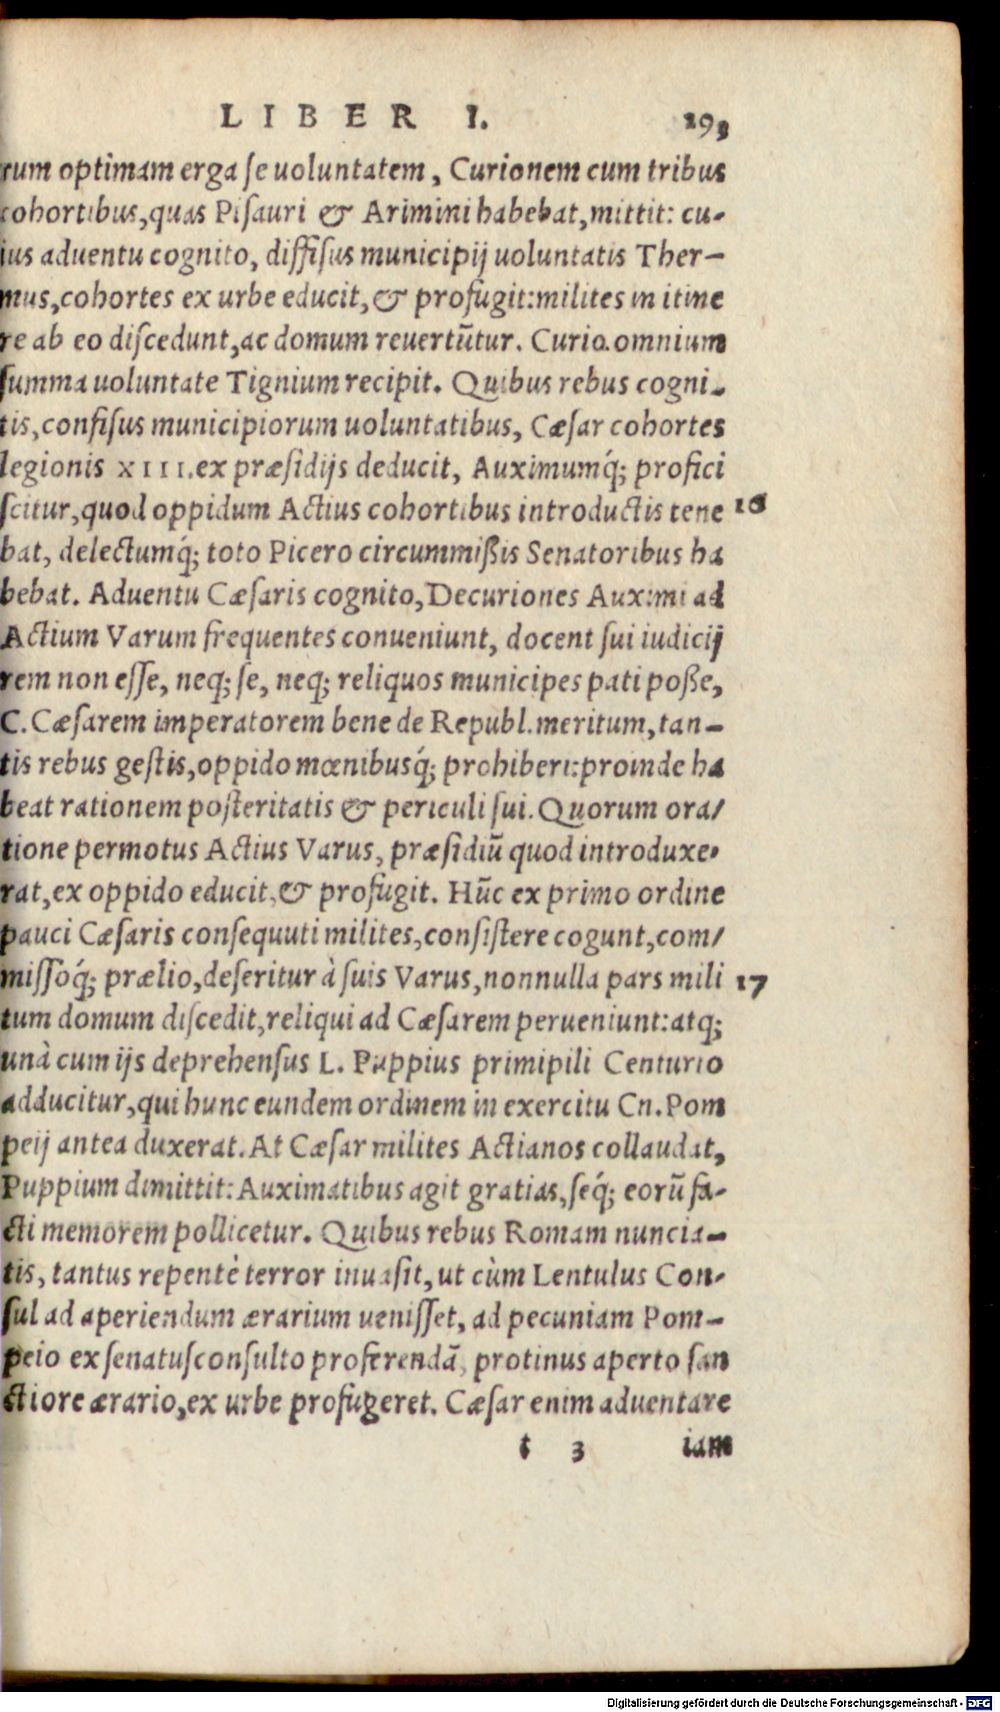 LIBER I. 293
rum optimam erga se uoluntatem, Curionem cum tribus
cohortibus,quas Pisauri & Arimini habebat,mittit: cu-
ius aduentu cognito, diffisus municipij uoluntatis Ther-
mus,cohortes ex urbe educit,& profugit:milites in itine
re ab eo discedunt,ac domum reuertũtur. Curio.omnium
summa uoluntate Tignium recipit. Quibus rebus cogni-
tis,confisus municipiorum uoluntatibus, Cæsar cohortes
legionis XIII.ex præsidijs deducit, Auximumq́; profici
scitur,quod oppidum Actius cohortibus introductis tene 16
bat, delectumq́; toto Picero circummißis Senatoribus ha
bebat. Aduentu Cæsaris cognito,Decuriones Auximi ad
Actium Varum frequentes conueniunt, docent sui iudicij
rem non esse, neq; se, neq; reliquos municipes pati poße,
C.Cæsarem imperatorem bene de Republ.meritum,tan-
tis rebus gestis,oppido mœnibusq́; prohiberi:proinde ha
beat rationem posteritatis & periculi sui. Quorum ora/
tione permotus Actius Varus, præsidiũ quod introduxe-
rat,ex oppido educit,& profugit. Hũc ex primo ordine
pauci Cæsaris consequuti milites,consistere cogunt,com/
missoq́; prælio,deseritur à suis Varus,nonnulla pars mili 17
tum domum discedit,reliqui ad Cæsarem perueniunt:atq;
unà cum ijs deprehensus L. Puppius primipili Centurio
adducitur,qui hunc eundem ordinem in exercitu Cn.Pom
peij antea duxerat. At Cæsar milites Actianos collaudat,
Puppium dimittit: Auximatibus agit gratias,seq́; eorũ fa-
cti memorem pollicetur. Quibus rebus Romam nuncia-
tis, tantus repentè terror inuasit, ut cùm Lentulus Con-
sul ad aperiendum ærarium uenisset, ad pecuniam Pom-
peio ex senatusconsulto proferendã, protinus aperto san
ctiore ærario,ex urbe profugeret. Cæsar enim aduentare
t 3 iam
Digitalisierung gefördert durch die Deutsche Forschungsgemeinschaft - DFG